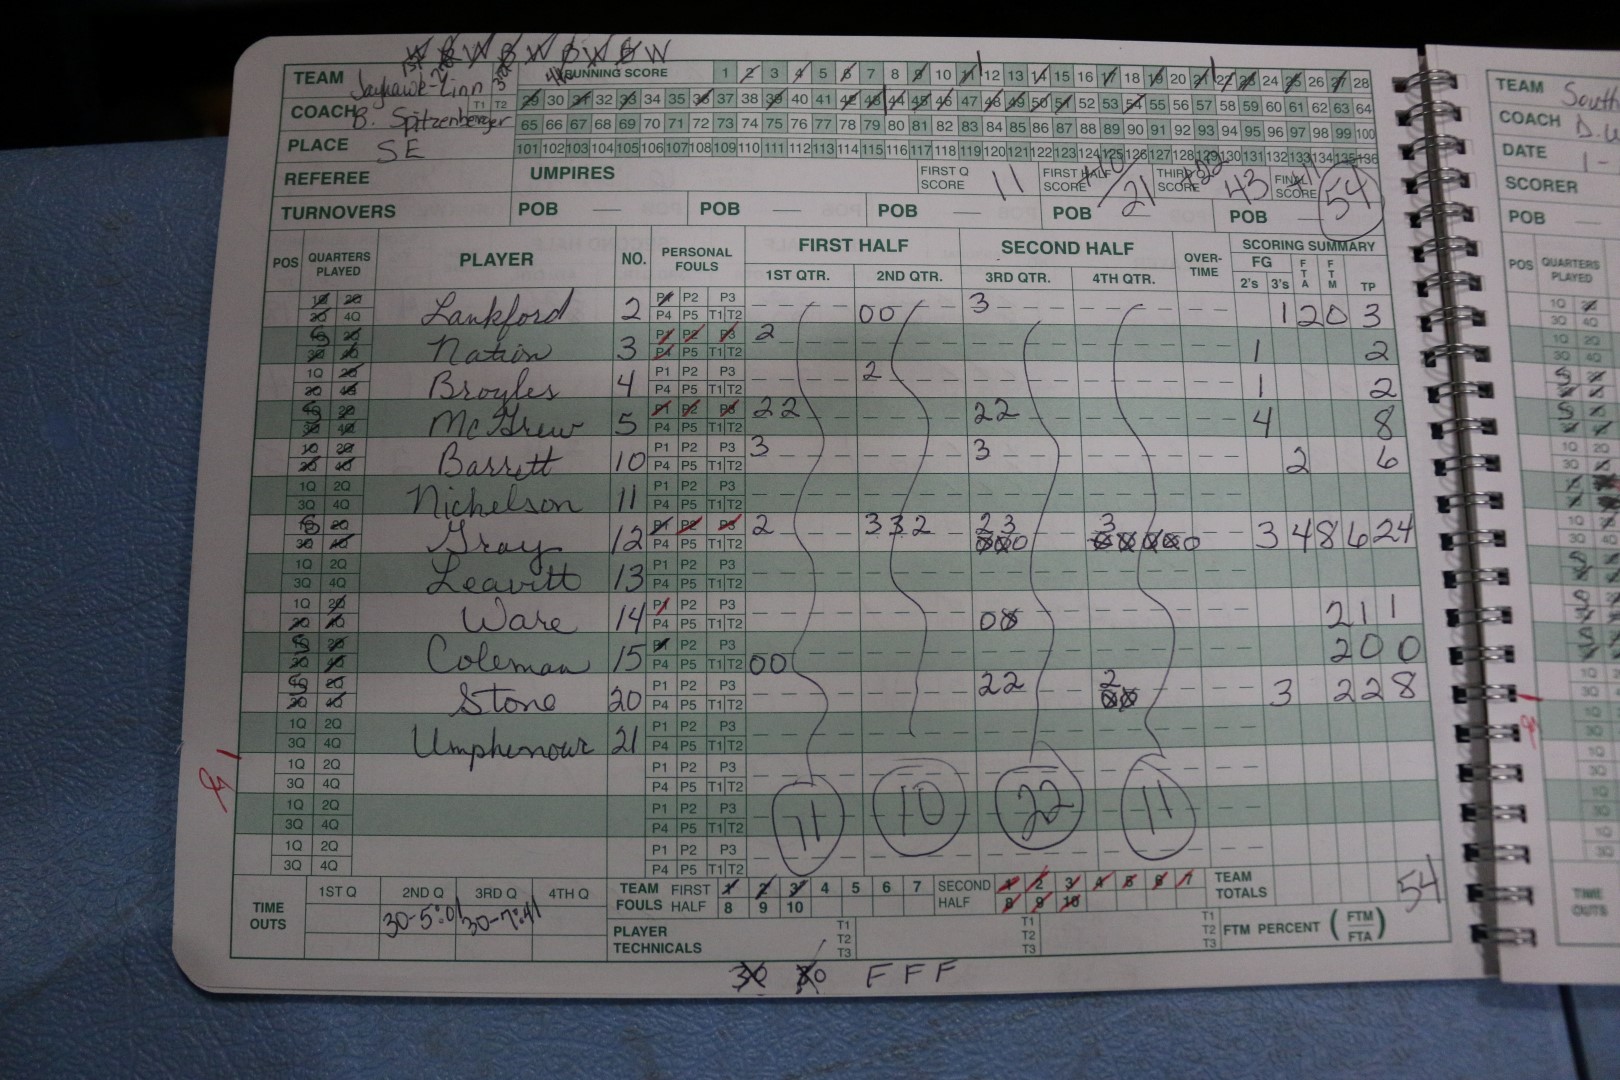 W B W B W B W B W
TEAM Jayhawk-Linn
RUNNING SCORE 1 2 3 4 5 6 7 8 9 10 11 12 13 14 15 16 17 18 19 20 21 22 23 24 25 26 27 28
29 30 31 32 33 34 35 36 37 38 39 40 41 42 43 44 45 46 47 48 49 50 51 52 53 54 55 56 57 58 59 60 61 62 63 64
COACH B. Spitzenberger T1 T2
65 66 67 68 69 70 71 72 73 74 75 76 77 78 79 80 81 82 83 84 85 86 87 88 89 90 91 92 93 94 95 96 97 98 99 100
PLACE SE
101 102 103 104 105 106 107 108 109 110 111 112 113 114 115 116 117 118 119 120 121 122 123 124 125 126 127 128 129 130 131 132 133 134 135 136
REFEREE UMPIRES FIRST Q SCORE 11 FIRST HALF SCORE +10/21 THIRD SCORE +22 43 FINAL SCORE +11 54
TURNOVERS POB — POB — POB — POB POB —
POS QUARTERS PLAYED PLAYER NO. PERSONAL FOULS FIRST HALF SECOND HALF OVER-TIME SCORING SUMMARY
1ST QTR. 2ND QTR. 3RD QTR. 4TH QTR. FG 2's 3's FTA FTM TP
1Q 2Q 3Q 4Q Lankford 2 P1 P2 P3 P4 P5 T1 T2 00 3 1 2 0 3
Nation 3 P1 P2 P3 P4 P5 T1 T2 2 1 2
1Q 2Q 3Q 4Q Broyles 4 P1 P2 P3 P4 P5 T1 T2 2 1 2
McGrew 5 P1 P2 P3 P4 P5 T1 T2 22 22 4 8
1Q 2Q 3Q 4Q Barrett 10 P1 P2 P3 P4 P5 T1 T2 3 3 2 6
1Q 2Q 3Q 4Q Nichelson 11 P1 P2 P3 P4 P5 T1 T2
Gray 12 P1 P2 P3 P4 P5 T1 T2 2 332 23 000 3 00000 3 4 8 6 24
1Q 2Q 3Q 4Q Leavitt 13 P1 P2 P3 P4 P5 T1 T2
1Q 2Q 3Q 4Q Ware 14 P1 P2 P3 P4 P5 T1 T2 00 2 1 1
Coleman 15 P1 P2 P3 P4 P5 T1 T2 00 2 0 0
Stone 20 P1 P2 P3 P4 P5 T1 T2 22 2 00 3 2 2 8
1Q 2Q 3Q 4Q Umphenour 21 P1 P2 P3 P4 P5 T1 T2
1Q 2Q 3Q 4Q P1 P2 P3 P4 P5 T1 T2
1Q 2Q 3Q 4Q P1 P2 P3 P4 P5 T1 T2 11 10 22 11
1Q 2Q 3Q 4Q P1 P2 P3 P4 P5 T1 T2
TIME OUTS 1ST Q 2ND Q 3RD Q 4TH Q
30-5:01 30-7:41
TEAM FOULS FIRST HALF 1 2 3 4 5 6 7 8 9 10 SECOND HALF 1 2 3 4 5 6 7 8 9 10 TEAM TOTALS 54
PLAYER TECHNICALS T1 T2 T3 T1 T2 T3 T1 T2 T3 FTM PERCENT (FTM/FTA)
30 30 F F F
TEAM South
COACH D.
DATE 1-
SCORER
POB —
POS QUARTERS PLAYED
TIME OUTS